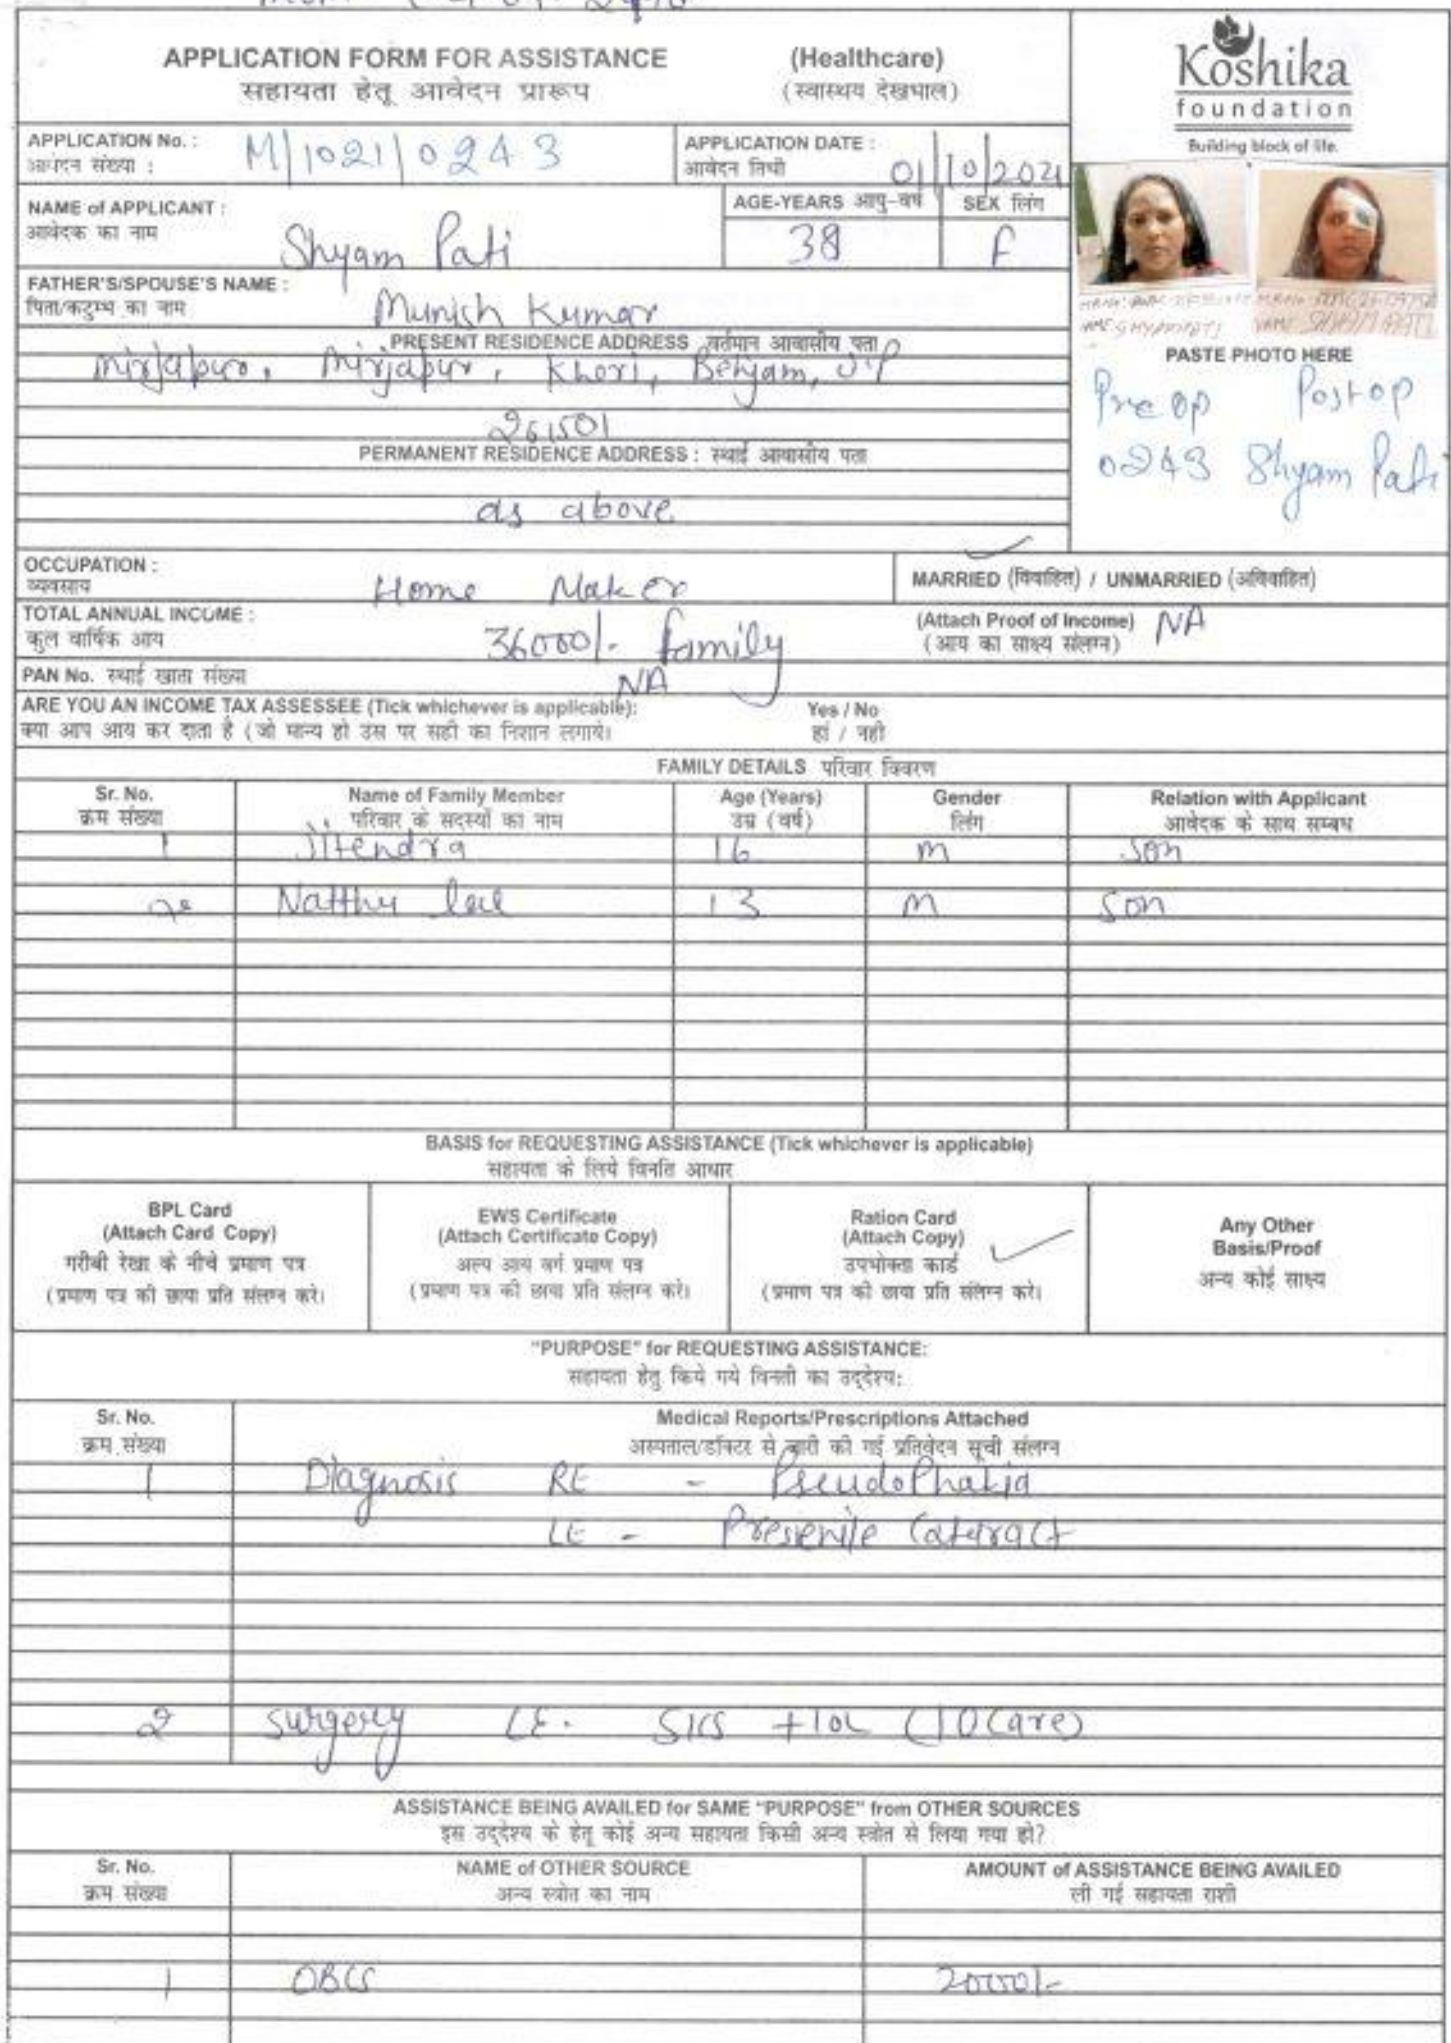 APPLICATION FORM FOR ASSISTANCE (Healthcare)
सहायता हेतू आवेदन प्रारूप (स्वास्थय देखभाल)
Koshika
foundation
Building block of life.
APPLICATION No. : M/1021/0243
आवेदन संख्या :
APPLICATION DATE : 01/10/2021
आवेदन तिथी
NAME of APPLICANT : Shyam Pati
आवेदक का नाम
AGE-YEARS आयु-वर्ष 38
SEX लिंग F
FATHER'S/SPOUSE'S NAME : Munish Kumar
पिता/कटुम्भ का नाम
PRESENT RESIDENCE ADDRESS वर्तमान आवासीय पता
Mirjapur, Mirjapur, Kheri, Behjam, UP
261501
PERMANENT RESIDENCE ADDRESS : स्थाई आवासीय पता
as above
PASTE PHOTO HERE
Pre op Post op
0243 Shyam Pati
OCCUPATION : Home Maker
व्यवसाय
MARRIED (विवाहित) / UNMARRIED (अविवाहित)
TOTAL ANNUAL INCOME : 36000/- family
कुल वार्षिक आय
(Attach Proof of Income) NA
(आय का साक्ष्य संलग्न)
PAN No. स्थाई खाता संख्या NA
ARE YOU AN INCOME TAX ASSESSEE (Tick whichever is applicable): Yes / No
क्या आप आय कर दाता है (जो मान्य हो उस पर सही का निशान लगाये। हां / नही
FAMILY DETAILS परिवार विवरण
Sr. No. Name of Family Member Age (Years) Gender Relation with Applicant
क्रम संख्या परिवार के सदस्यों का नाम उम्र (वर्ष) लिंग आवेदक के साथ सम्बध
1 Jitendra 16 m son
2 Natthu lal 13 m son
BASIS for REQUESTING ASSISTANCE (Tick whichever is applicable)
सहायता के लिये विनति आधार
BPL Card
(Attach Card Copy)
गरीबी रेखा के नीचे प्रमाण पत्र
(प्रमाण पत्र की छाया प्रति संलग्न करे।
EWS Certificate
(Attach Certificate Copy)
अल्प आय वर्ग प्रमाण पत्र
(प्रमाण पत्र की छाया प्रति संलग्न करे।
Ration Card
(Attach Copy)
उपभोक्ता कार्ड
(प्रमाण पत्र की छाया प्रति संलग्न करे।
Any Other
Basis/Proof
अन्य कोई साक्ष्य
"PURPOSE" for REQUESTING ASSISTANCE:
सहायता हेतु किये गये विनती का उद्देश्य:
Sr. No. Medical Reports/Prescriptions Attached
क्रम संख्या अस्पताल/डॉक्टर से जारी की गई प्रतिवेदन सूची संलग्न
1 Diagnosis RE - PseudoPhakia
LE - Presenile Cataract
2 Surgery LE. SICS + IOL (IOCare)
ASSISTANCE BEING AVAILED for SAME "PURPOSE" from OTHER SOURCES
इस उद्देश्य के हेतू कोई अन्य सहायता किसी अन्य स्त्रोत से लिया गया हो?
Sr. No. NAME of OTHER SOURCE AMOUNT of ASSISTANCE BEING AVAILED
क्रम संख्या अन्य स्त्रोत का नाम ली गई सहायता राशी
1 OBCS 2000/-